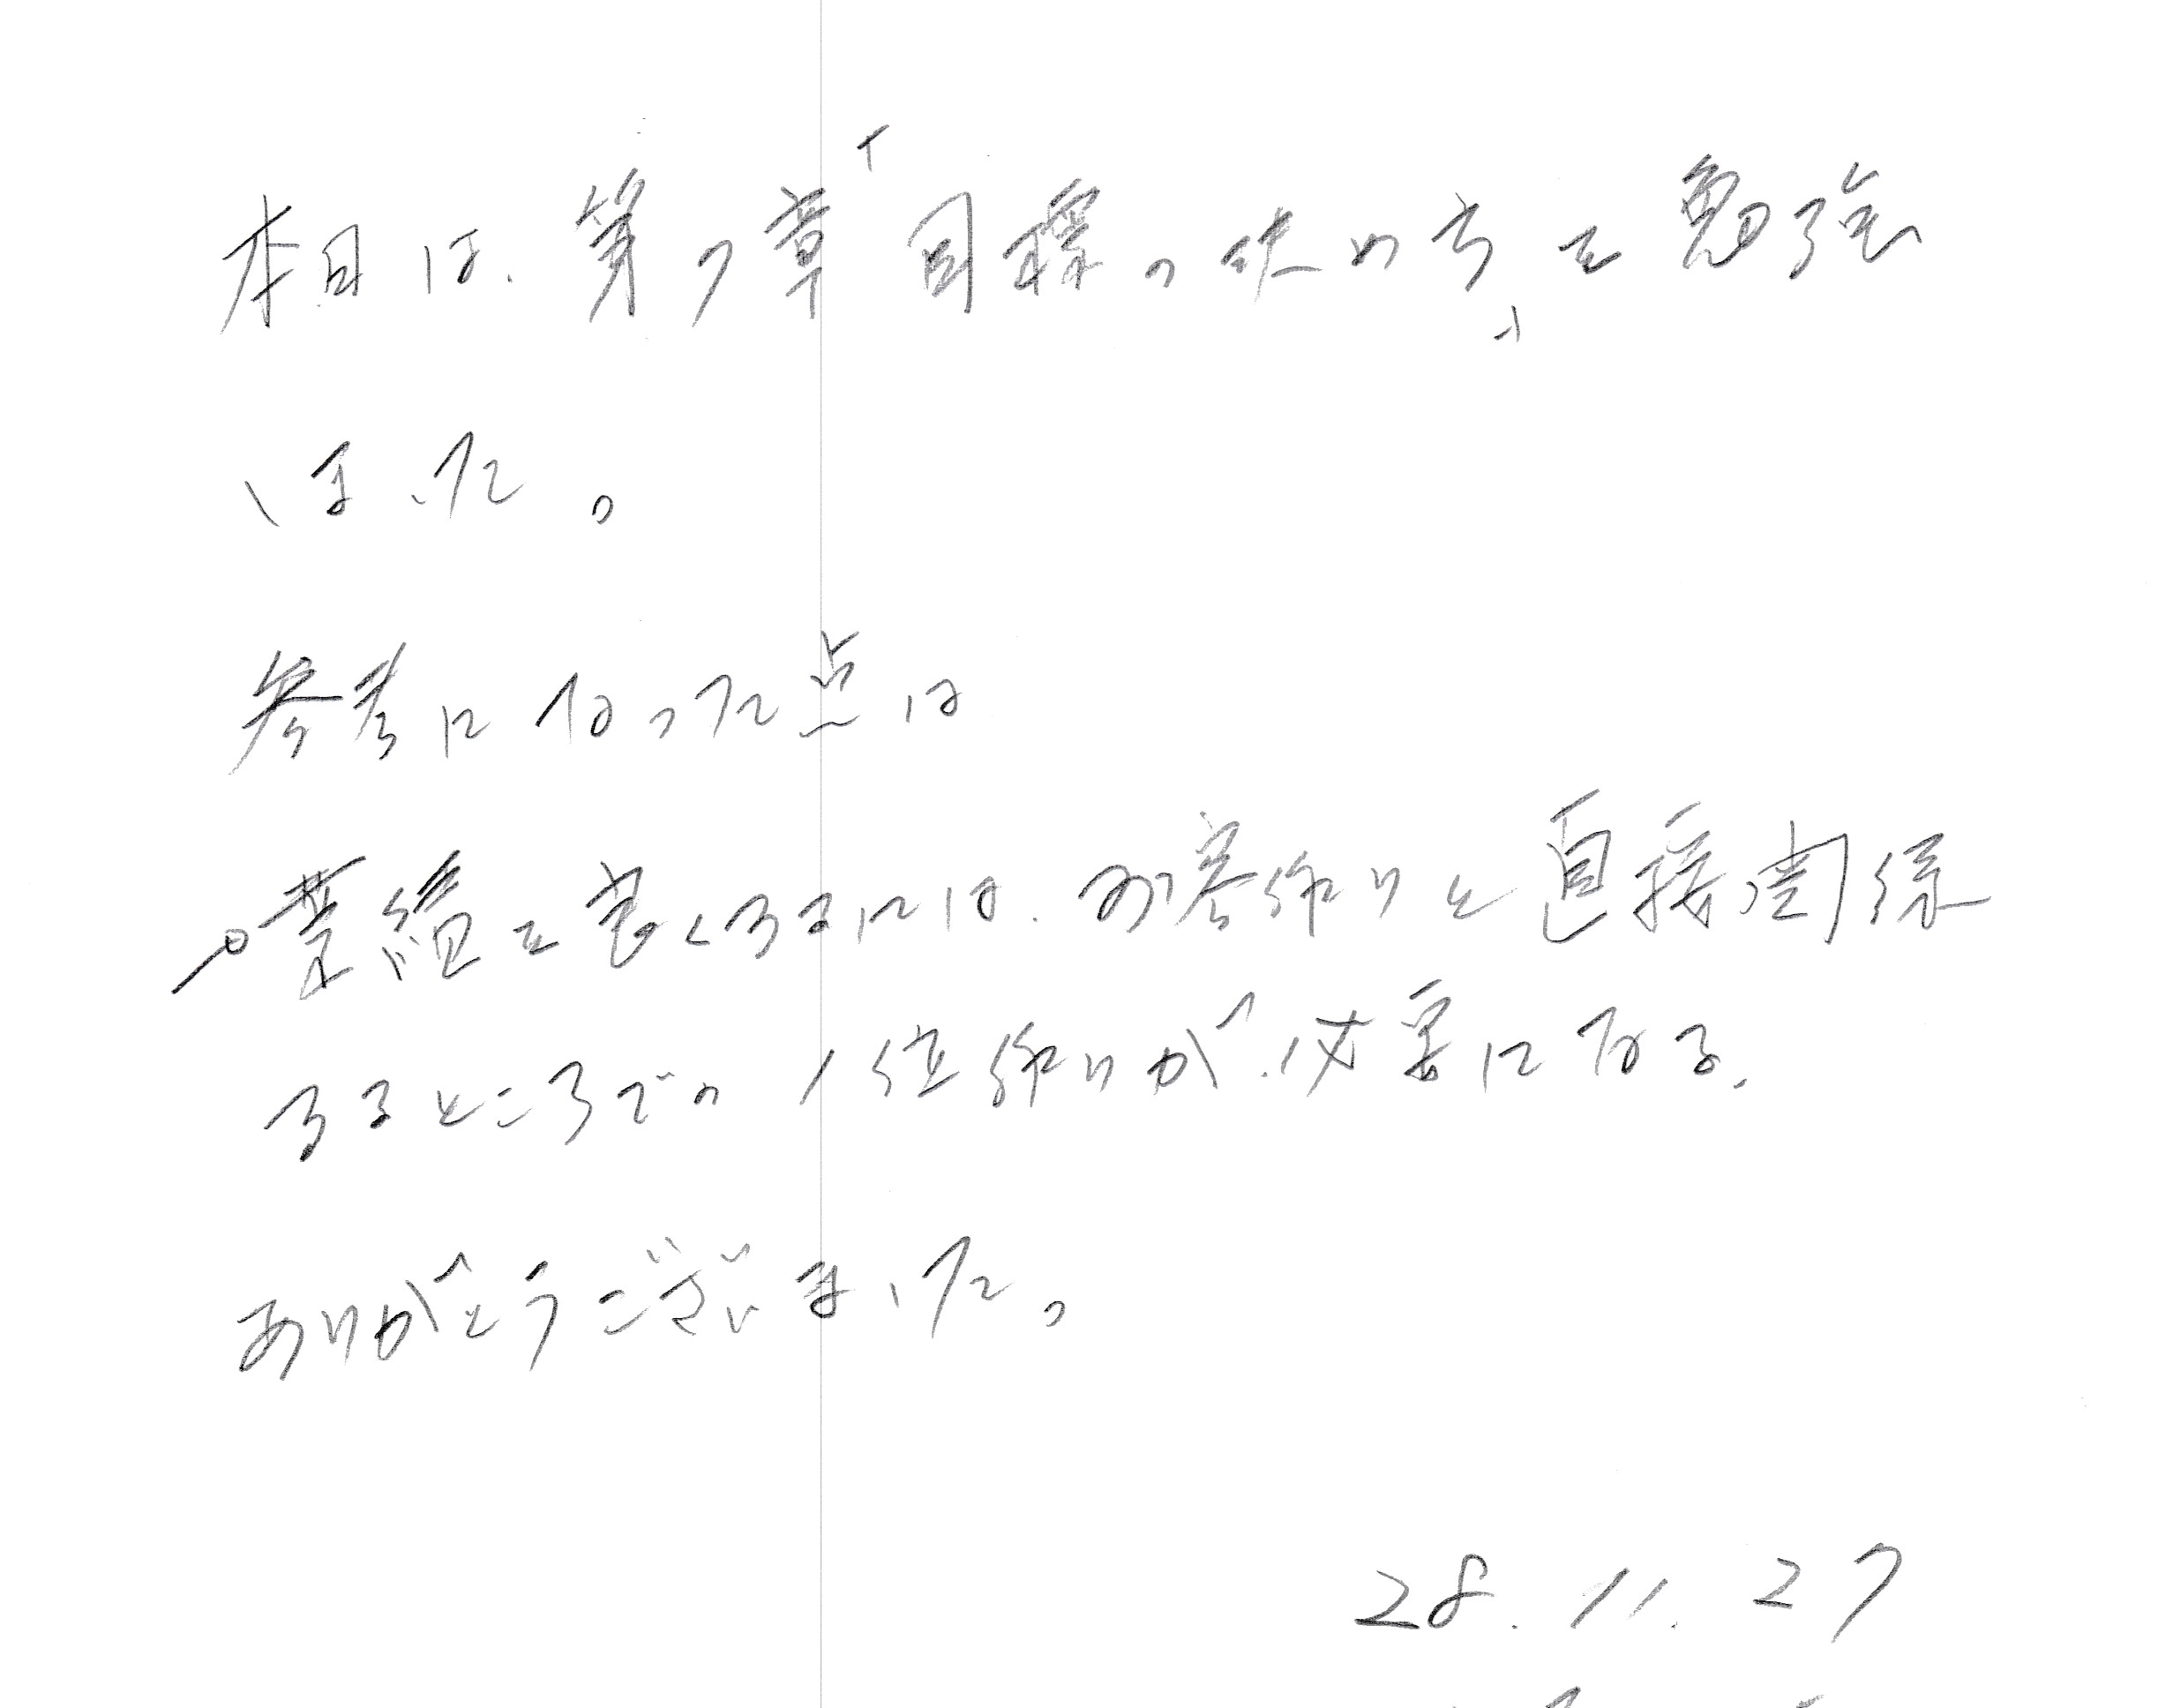 本日は、第7章「目標の決め方」を勉強
しました。
参考になった点は
○業績を良くするには、お客作りと直接関係
するところでの1位作りが、必要になる。
ありがとうございました。
28.11.27